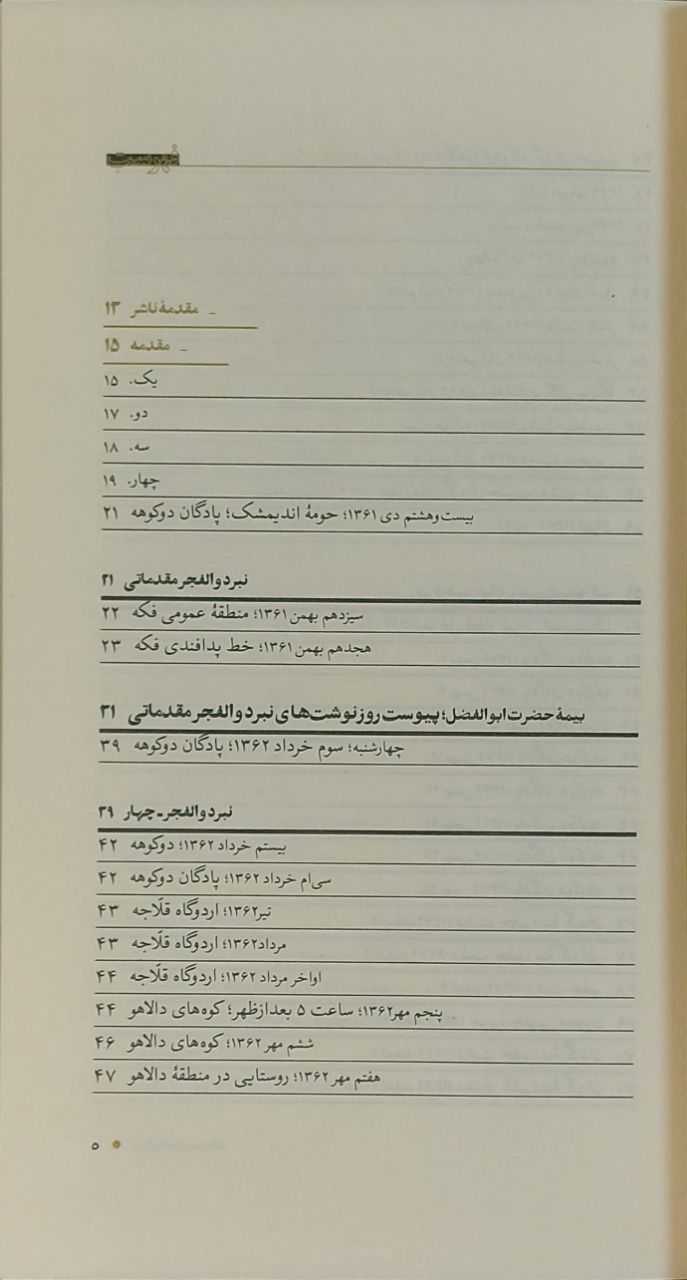 فهرست
_ مقدمهٔ ناشر ۱۳
_ مقدمه ۱۵
یک. ۱۵
دو. ۱۷
سه. ۱۸
چهار. ۱۹
بیست‌وهشتم دی ۱۳۶۱؛ حومهٔ اندیمشک؛ پادگان دوکوهه ۲۱
نبرد والفجر مقدماتی ۲۱
سیزدهم بهمن ۱۳۶۱؛ منطقهٔ عمومی فکه ۲۲
هجدهم بهمن ۱۳۶۱؛ خط پدافندی فکه ۲۳
بیمهٔ حضرت ابوالفضل؛ پیوست روزنوشت‌های نبرد والفجر مقدماتی ۳۱
چهارشنبه؛ سوم خرداد ۱۳۶۲؛ پادگان دوکوهه ۳۹
نبرد والفجر-چهار ۳۹
بیستم خرداد ۱۳۶۲؛ دوکوهه ۴۲
سی‌ام خرداد ۱۳۶۲؛ پادگان دوکوهه ۴۲
تیر۱۳۶۲؛ اردوگاه قلّاجه ۴۳
مرداد۱۳۶۲؛ اردوگاه قلّاجه ۴۳
اواخر مرداد ۱۳۶۲؛ اردوگاه قلّاجه ۴۴
پنجم مهر۱۳۶۲؛ ساعت ۵ بعدازظهر؛ کوه‌های دالاهو ۴۴
ششم مهر ۱۳۶۲؛ کوه‌های دالاهو ۴۶
هفتم مهر ۱۳۶۲؛ روستایی در منطقهٔ دالاهو ۴۷
۵